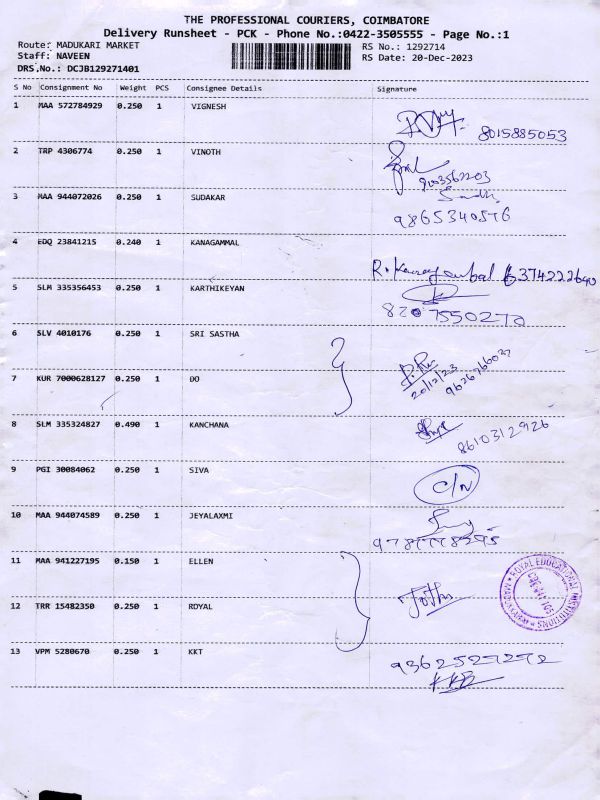 THE PROFESSIONAL COURIERS, COIMBATORE
Delivery Runsheet - PCK - Phone No.:0422-3505555 - Page No.:1
Route: MADUKARI MARKET
RS No.: 1292714
Staff: NAVEEN
RS Date: 20-Dec-2023
DRS.No.: DCJB129271401
S No Consignment No Weight PCS Consignee Details Signature
1 MAA 572784929 0.250 1 VIGNESH
8015885053
2 TRP 4306774 0.250 1 VINOTH
9003562203
3 MAA 944072026 0.250 1 SUDAKAR
9865340576
4 EDQ 23841215 0.240 1 KANAGAMMAL
6374222640
5 SLM 335356453 0.250 1 KARTHIKEYAN
8207550270
6 SLV 4010176 0.250 1 SRI SASTHA
7 KUR 7000628127 0.250 1 DO
20/12/23
8 SLM 335324827 0.490 1 KANCHANA
8610312926
9 PGI 30084062 0.250 1 SIVA
C/N
10 MAA 944074589 0.250 1 JEYALAXMI
11 MAA 941227195 0.150 1 ELLEN
ROYAL EDUCATIONAL INSTITUTIONS
12 TRR 15482350 0.250 1 ROYAL
13 VPM 5280670 0.250 1 KKT
9362527272